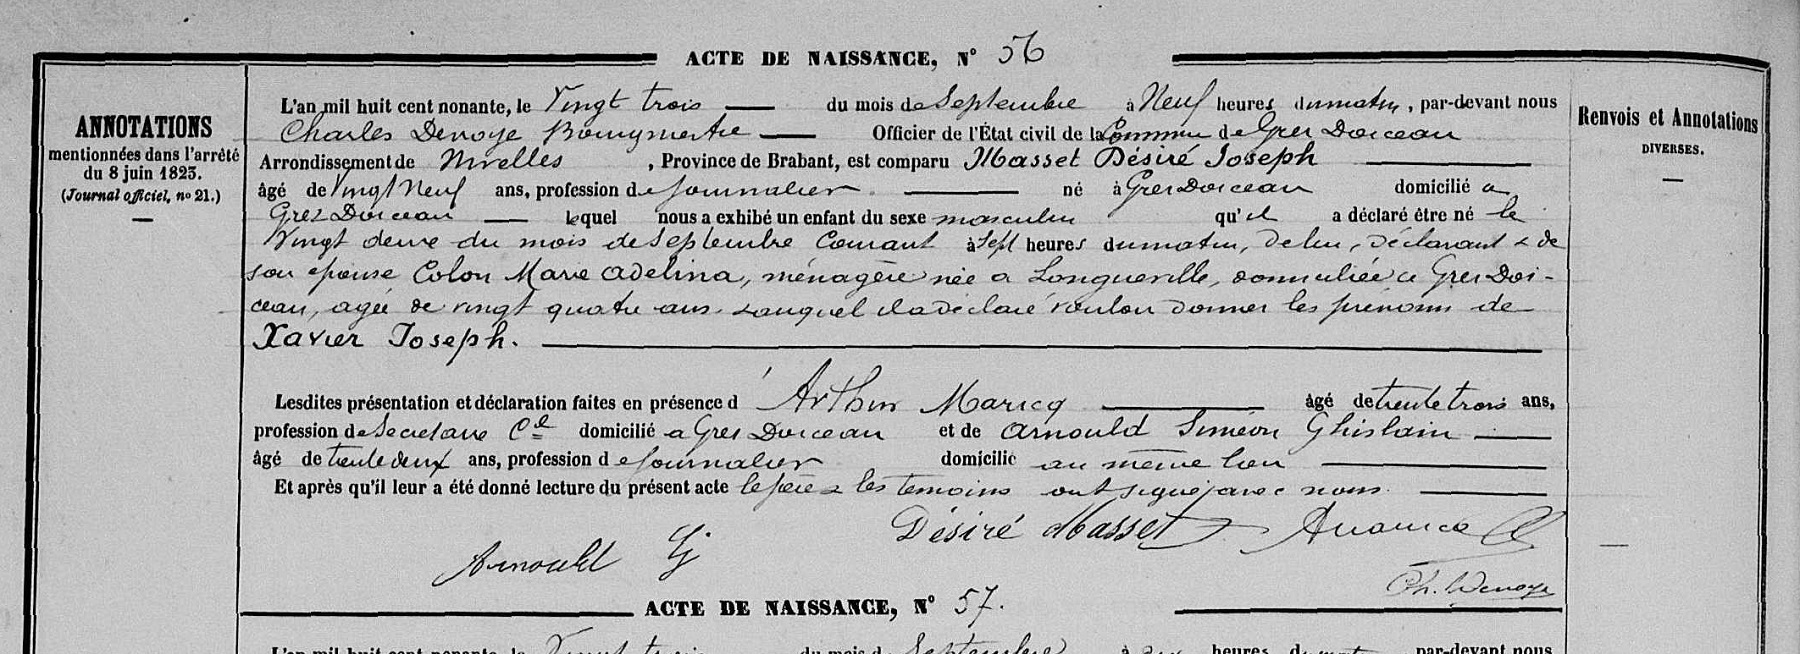 ACTE DE NAISSANCE, N° 56
ANNOTATIONS
mentionnées dans l'arrêté
du 8 juin 1823.
(Journal officiel, no 21.)
Renvois et Annotations
DIVERSES.
L'an mil huit cent nonante, le Vingt trois du mois de Septembre à Neuf heures du matin, par-devant nous
Charles Denoye Bourgmestre Officier de l'État civil de la Commune de Grez Doiceau
Arrondissement de Nivelles, Province de Brabant, est comparu Masset Désiré Joseph
âgé de Vingt Neuf ans, profession de journalier né à Grez Doiceau domicilié a
Grez Doiceau lequel nous a exhibé un enfant du sexe masculin qu'il a déclaré être né le
Vingt deux du mois de Septembre Courant à Sept heures du matin, de lui, déclarant & de
son épouse Colon Marie Adelina, ménagère née a Longueville, domiciliée a Grez Doi-
ceau, agée de vingt quatre ans. & auquel il a déclaré vouloir donner les prénoms de
Xavier Joseph.
Lesdites présentation et déclaration faites en présence d'Arthur Maricq âgé de trente trois ans,
profession de Secretaire Cal domicilié a Grez Doiceau et de Arnould Siméon Ghislain
âgé de trente deux ans, profession de journalier domicilié au même lieu
Et après qu'il leur a été donné lecture du présent acte le père & les temoins ont signé avec nous.
Désiré Masset
Arnould
Ch. Denoye
ACTE DE NAISSANCE, N° 57.
L'an mil huit cent nonante, le Vingt trois du mois de Septembre à dix heures du matin par-devant nous